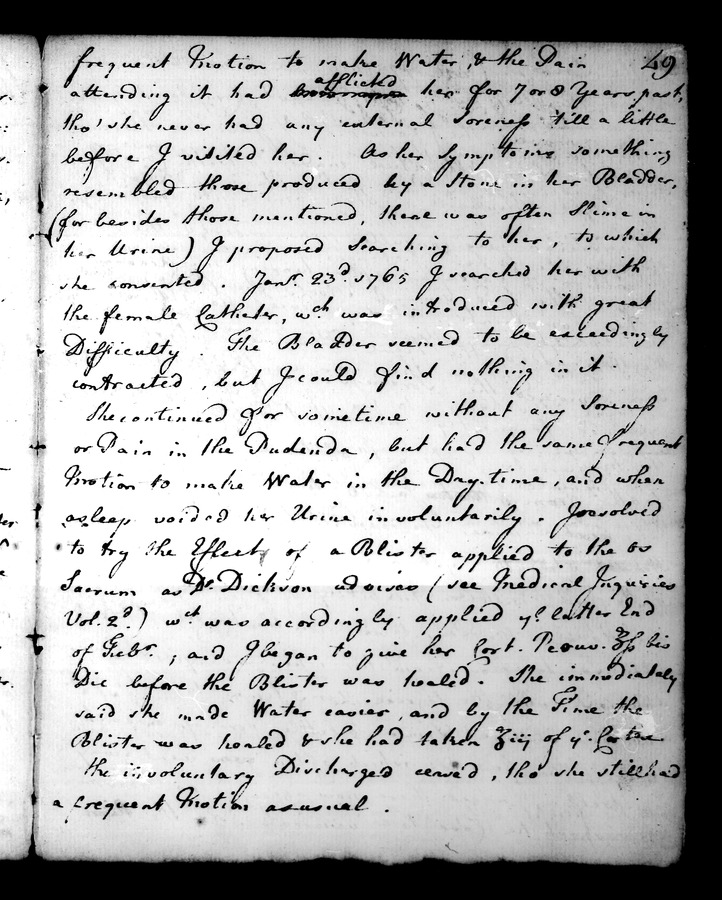 49
frequent Motion to make Water, & the Pain
attending it had afflicted her for 7 or 8 Years past,
tho' she never had any external Soreness till a little
before I visited her. As her Symptoms something
resembled those produced by a Stone in her Bladder,
(for besides those mentioned, there was often Slime in
her Urine) I proposed Searching to her, to which
she consented. Janr. 23d. 1765 I searched her with
the female Catheter, wch was introduced with great
Difficulty. The Bladder seemed to be exceedingly
contracted, but I could find nothing in it.
She continued for sometime without any Soreness
or Pain in the Pudenda, but had the same frequent
Motion to make Water in the Day-time, and when
asleep voided her Urine involuntarily. I resolved
to try the Effects of a Blister applied to the os
Sacrum as Dr. Dickson advises (see Medical Inquiries
Vol. 2d.) wch was accordingly applied ye latter End
of Febr., and I began to give her Cort. Peruv. ʒß bis
Die before the Blister was healed. She immediately
said she made Water easier, and by the Time the
Blister was healed & she had taken ℥iij of ye Cortex
the involuntary Discharged ceased, tho she still had
a frequent Motion as usual.